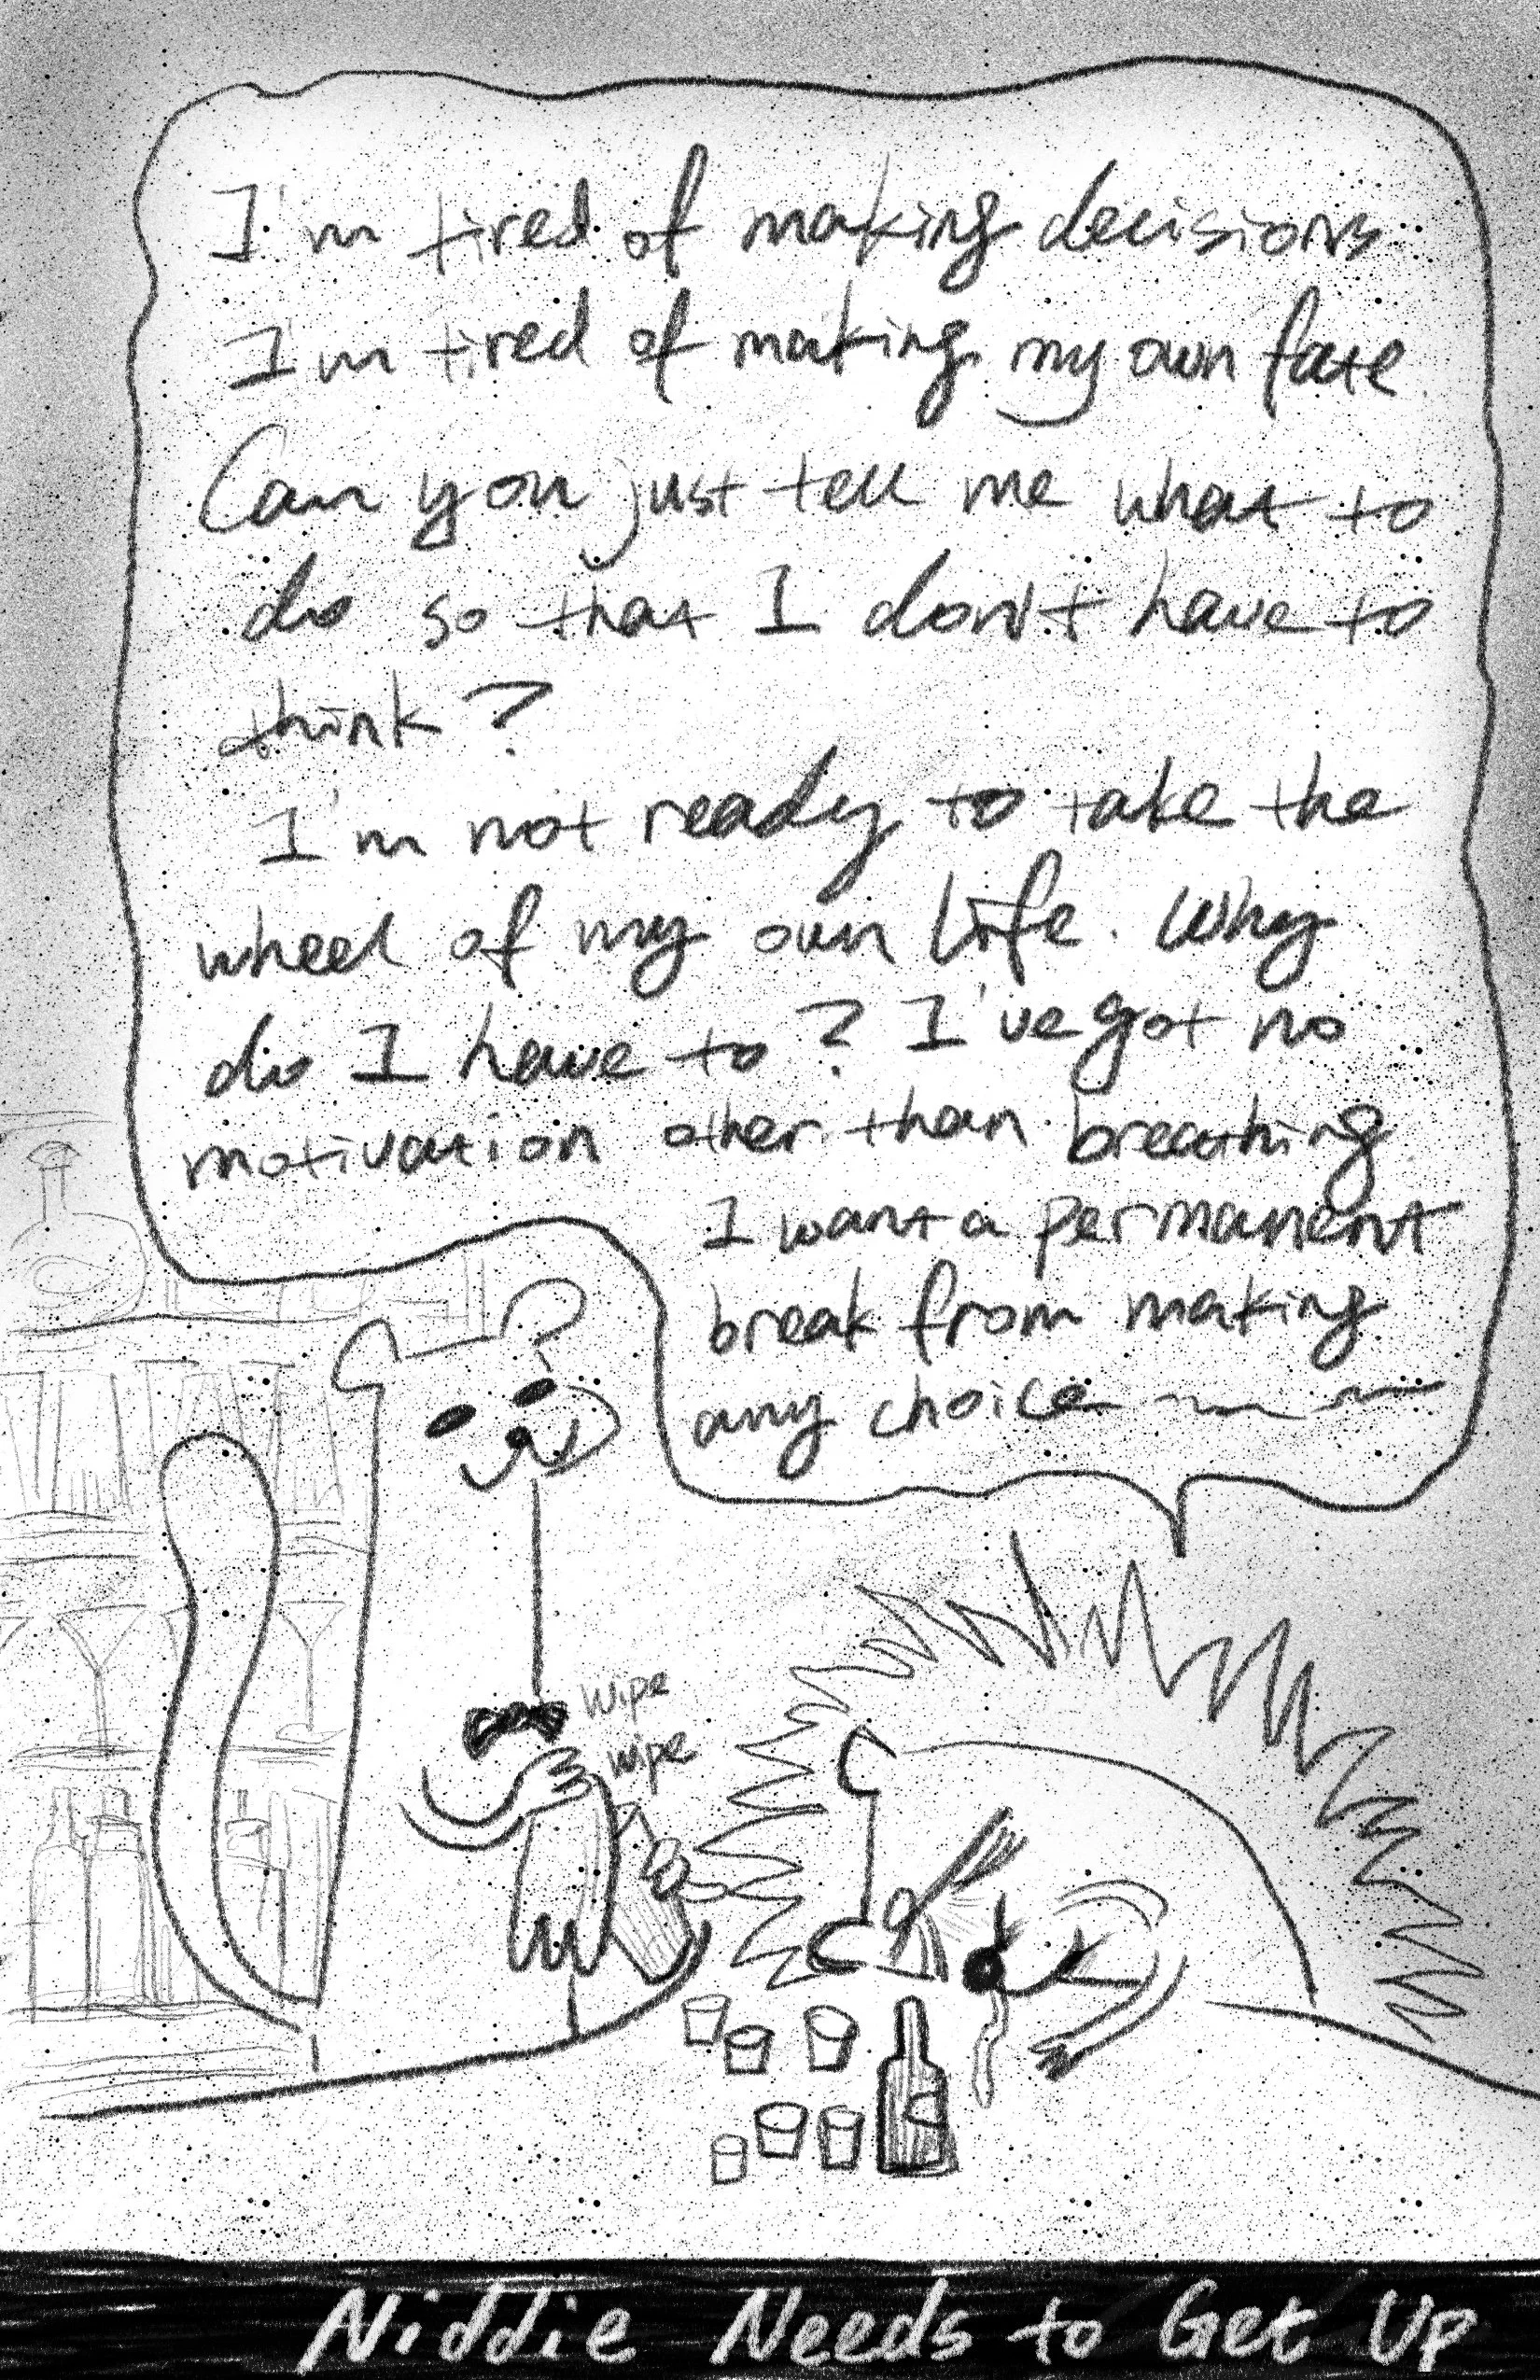 I'm tired of making decisions
I'm tired of making my own fate.
Can you just tell me what to
do so that I don't have to
think?
I'm not ready to take the
wheel of my own life. Why
do I have to? I've got no
motivation other than breathing.
I want a permanent
break from making
any choice
wipe
wipe
Niddie Needs to Get Up